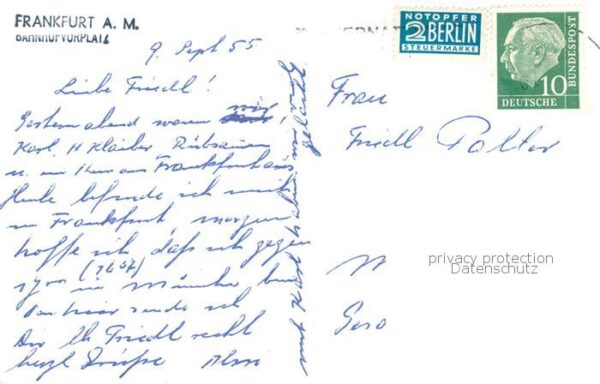 FRANKFURT A. M.
BAHNHOFVORPLATZ
NOTOPFER
2 BERLIN
STEUERMARKE
10
DEUTSCHE
BUNDESPOST
9. Sept 55
Liebe Friedl!
Gestern abend waren wir
Karl, H Klaiber
u. ein Herr aus Frankfurt
Heute befinde ich mich
in Frankfurt morgen
hoffe ich, daß ich gegen
1700 (1657)
in München bin
Von hier sende ich
Dir lb Friedl recht
herzl Grüße
mit Karl
Frau
Friedl Polter
privacy protection
Datenschutz